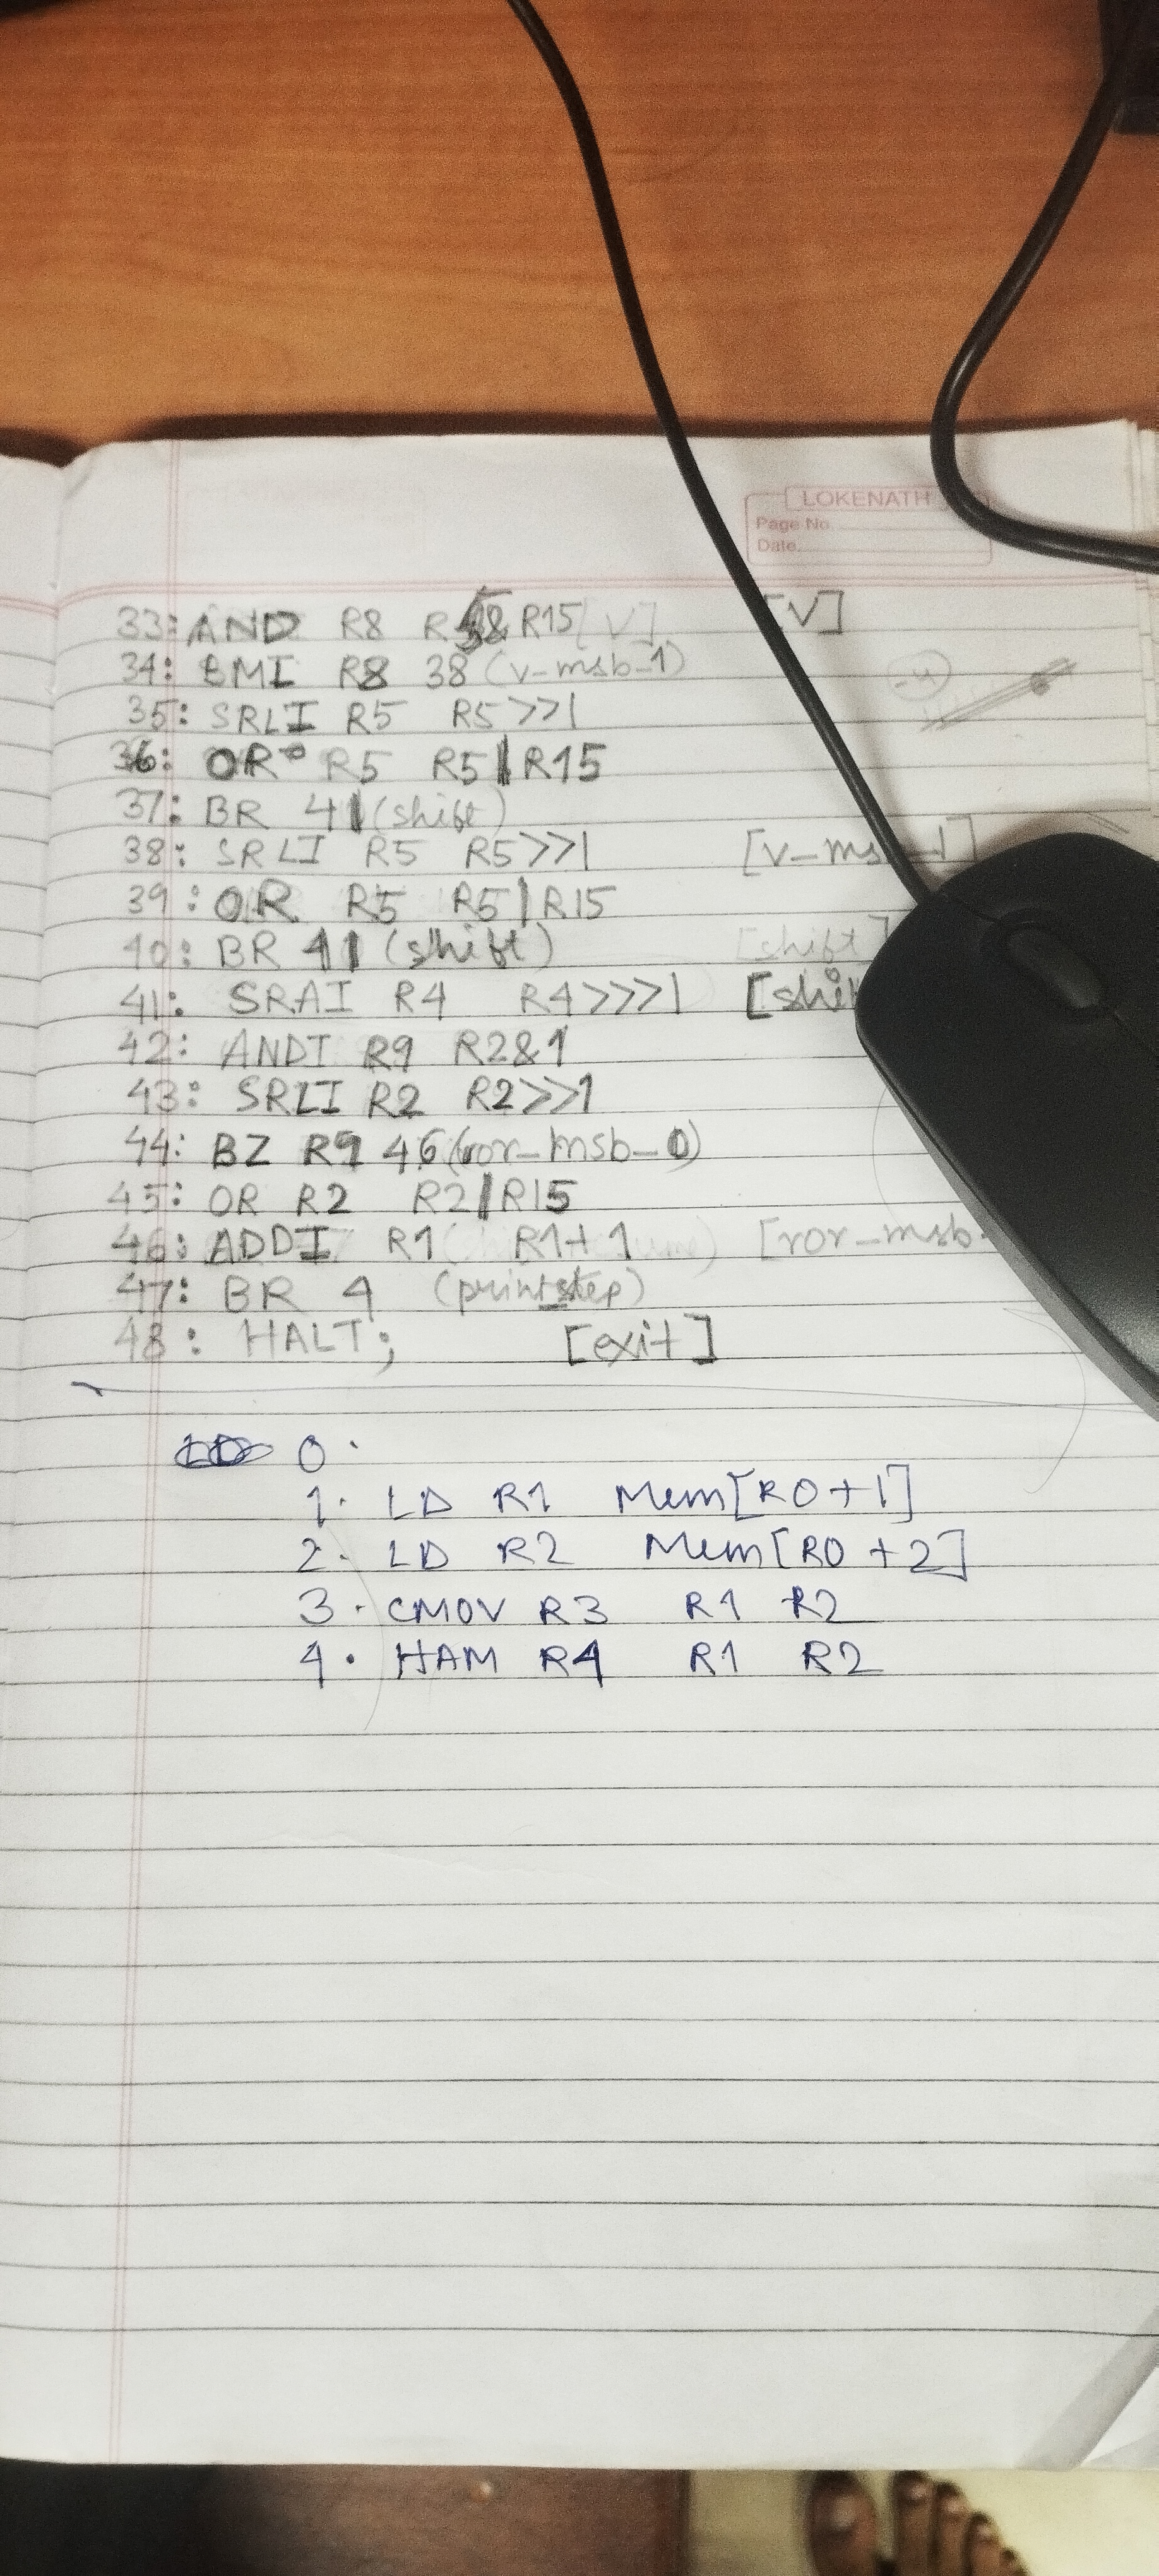 LOKENATH
Page No.
Date.
33: AND R8 R5&R15 [V] [V]
34: BMI R8 38 (v-msb-1)
35: SRLI R5 R5>>1
36: OR R5 R5|R15
37: BR 41 (shift)
38: SRLI R5 R5>>1
39: OR R5 R5|R15
40: BR 41 (shift) [shift]
41: SRAI R4 R4>>>1
42: ANDI R9 R2&1
43: SRLI R2 R2>>1
44: BZ R9 46 (ror-msb-0)
45: OR R2 R2|R15
46: ADDI R1 R1+1 [ror-msb-
47: BR 4 (print_step)
48: HALT; [exit]
0.
1. LD R1 Mem[R0+1]
2. LD R2 Mem[R0+2]
3. CMOV R3 R1 R2
4. HAM R4 R1 R2